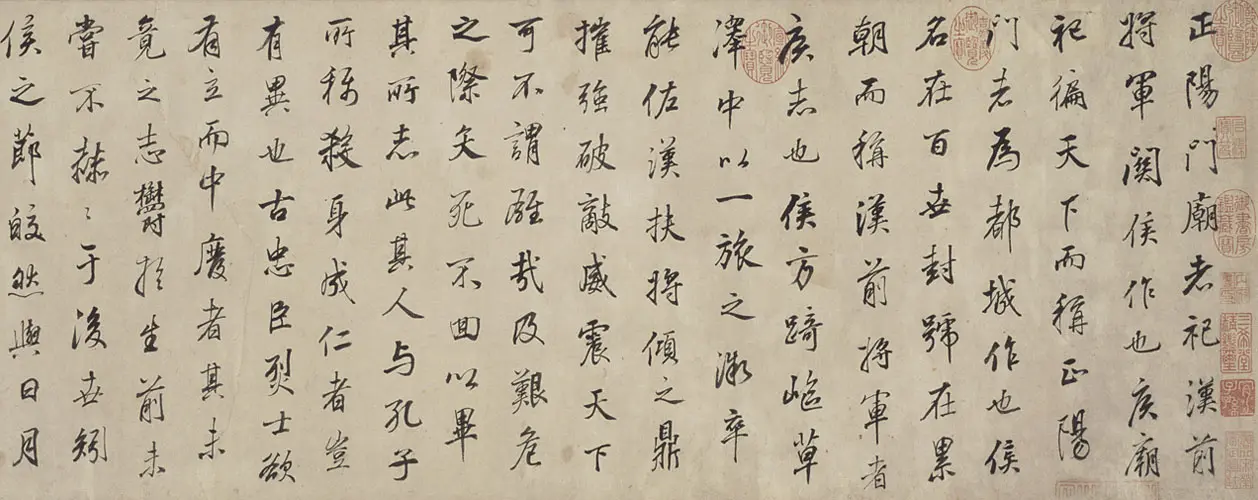 正陽門廟者祀漢前
將軍關侯作也侯廟
祀徧天下而稱正陽
門者為都城作也侯
名在百世封號在累
朝而稱漢前將軍者
侯志也侯方踦嶇草
澤中以一旅之微卒
能佐漢扶將傾之鼎
摧強破敵威震天下
可不謂雄哉及艱危
之際矢死不回以畢
其所志此其人与孔子
所稱殺身成仁者豈
有異也古忠臣烈士欲
有立而中廢者其未
竟之志欝於生前未
嘗不赫〻于後世矧
侯之節皎然與日月